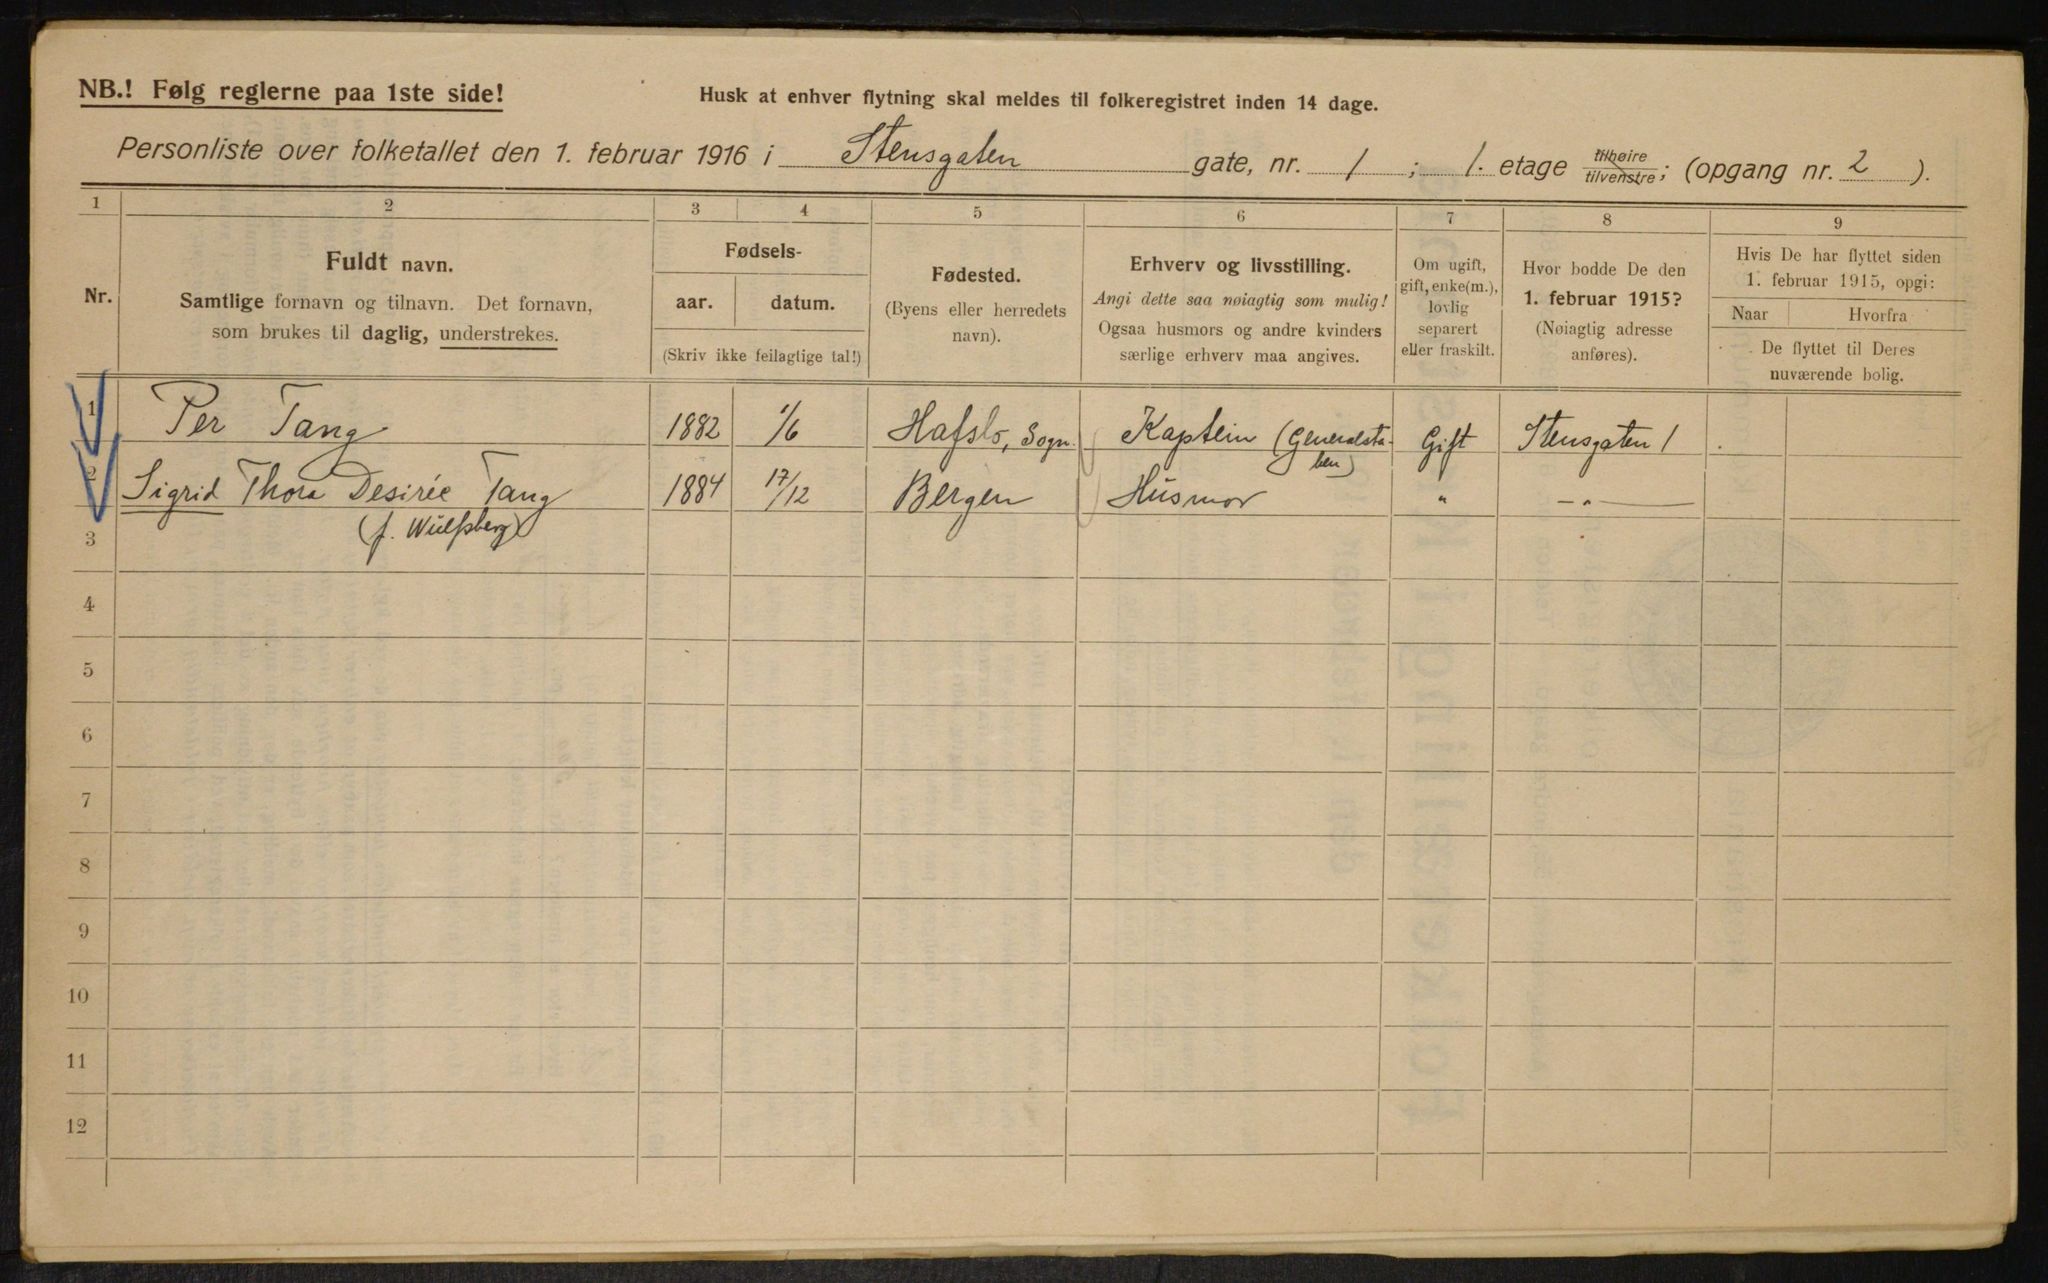 NB.! Følg reglerne paa 1ste side!
Husk at enhver flytning skal meldes til folkeregistret inden 14 dage.
Personliste over folketallet den 1. februar 1916 i Stensgaten gate, nr. 1 ; 1. etage tilhøire tilvenstre; (opgang nr. 2 ).
1 2 3 4 5 6 7 8 9
Nr.
Fuldt navn.
Samtlige fornavn og tilnavn. Det fornavn,
som brukes til daglig, understrekes.
Fødsels-
aar. datum.
(Skriv ikke feilagtige tal!)
Fødested.
(Byens eller herredets
navn).
Erhverv og livsstilling.
Angi dette saa nøiagtig som mulig!
Ogsaa husmors og andre kvinders
særlige erhverv maa angives.
Om ugift,
gift, enke(m.),
lovlig
separert
eller fraskilt.
Hvor bodde De den
1. februar 1915?
(Nøiagtig adresse
anføres).
Hvis De har flyttet siden
1. februar 1915, opgi:
Naar Hvorfra
De flyttet til Deres
nuværende bolig.
1 Per Tang 1882 1/6 Hafslo, Sogn. Kaptein (Generalsta- Gift Stensgaten 1
ben)
2 Sigrid Thora Desirée Tang 1884 17/12 Bergen Husmor " — " —
(f. Wulfsberg)
3
4
5
6
7
8
9
10
11
12